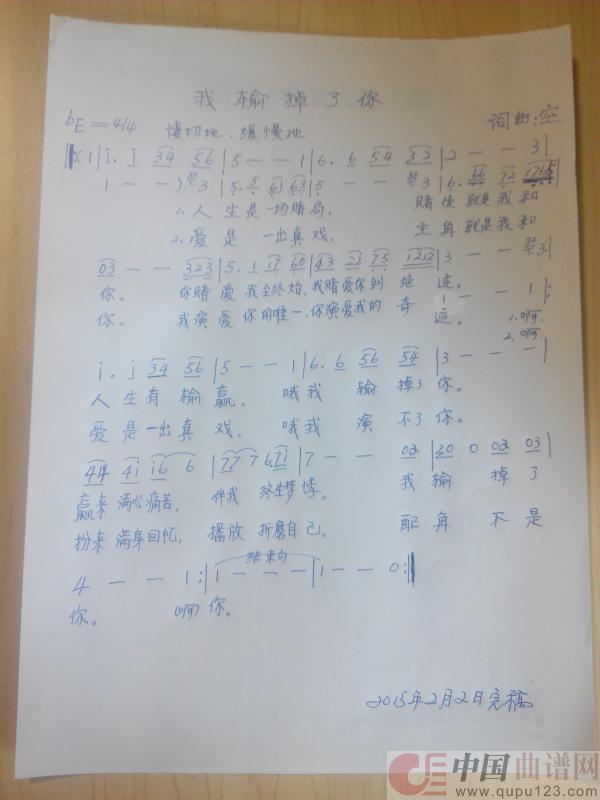 我输掉了你
bE=4/4 凄切地、缓慢地 词曲:空
1 | i. i 34 56 | 5 - - 1 | 6. 6 54 32 | 2 - - 3 |
1 - - 3 | 5. 5 61 63 | 5 - - 3 | 6. 66 72 1765
1.人生是一场赌局. 赌徒就是我和
2.爱是一出真戏. 主角就是我和
03 - - 323 | 5. 1 17 60 | 43 23 75 1212 | 3 - - 3 |
你。 你赌爱我至终始,我赌爱你到绝迹。 1 - - 1 |:
你。 我演爱你的唯一,你演爱我的奇迹。 1.啊.
2.啊.
i. i 34 56 | 5 - - 1 | 6. 6 56 54 | 3 - - - |
人生有输赢, 哦我输掉了你。
爱是一出真戏, 哦我演不了你。
44 4i i6 6 | 77 7 67i | 7 - - 02 | 20 0 02 03 |
赢来满心痛苦, 伴我终生梦悸。 我输掉了
扮来满身回忆, 播放折磨自己. 配角不是
结束句
4 - - 1 :| 1 - - - | 1 - - 0 :||
你。 (啊)你。
2015年2月2日完稿
中国曲谱网
www.qupu123.com